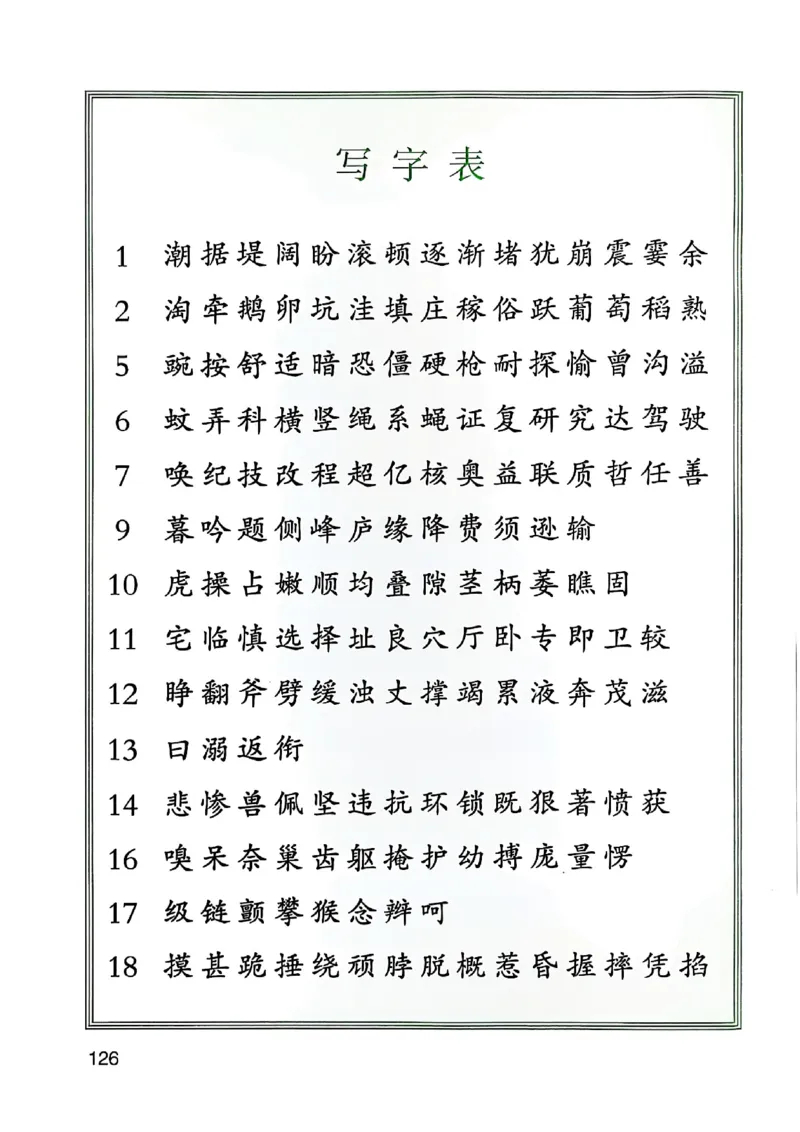 写字表
1 潮据堤阔盼滚顿逐渐堵犹崩震霎余
2 淘牵鹅卵坑洼填庄稼俗跃葡萄稻熟
5 豌按舒适暗恐僵硬枪耐探愉曾沟溢
6 蚊弄科横竖绳系蝇证复研究达驾驶
7 唤纪技改程超亿核奥益联质哲任善
9 暮吟题侧峰庐缘降费须逊输
10 虎操占嫩顺均叠隙茎柄萎瞧固
11 宅临慎选择址良穴厅卧专即卫较
12 睁翻斧劈缓浊丈撑竭累液奔茂滋
13 曰溺返衔
14 悲惨兽佩坚违抗环锁既狠著愤获
16 嗅呆奈巢齿躯掩护幼搏庞量愣
17 级链颤攀猴念辫呵
18 摸甚跪捶绕顽脖脱概惹昏握摔凭掐
126